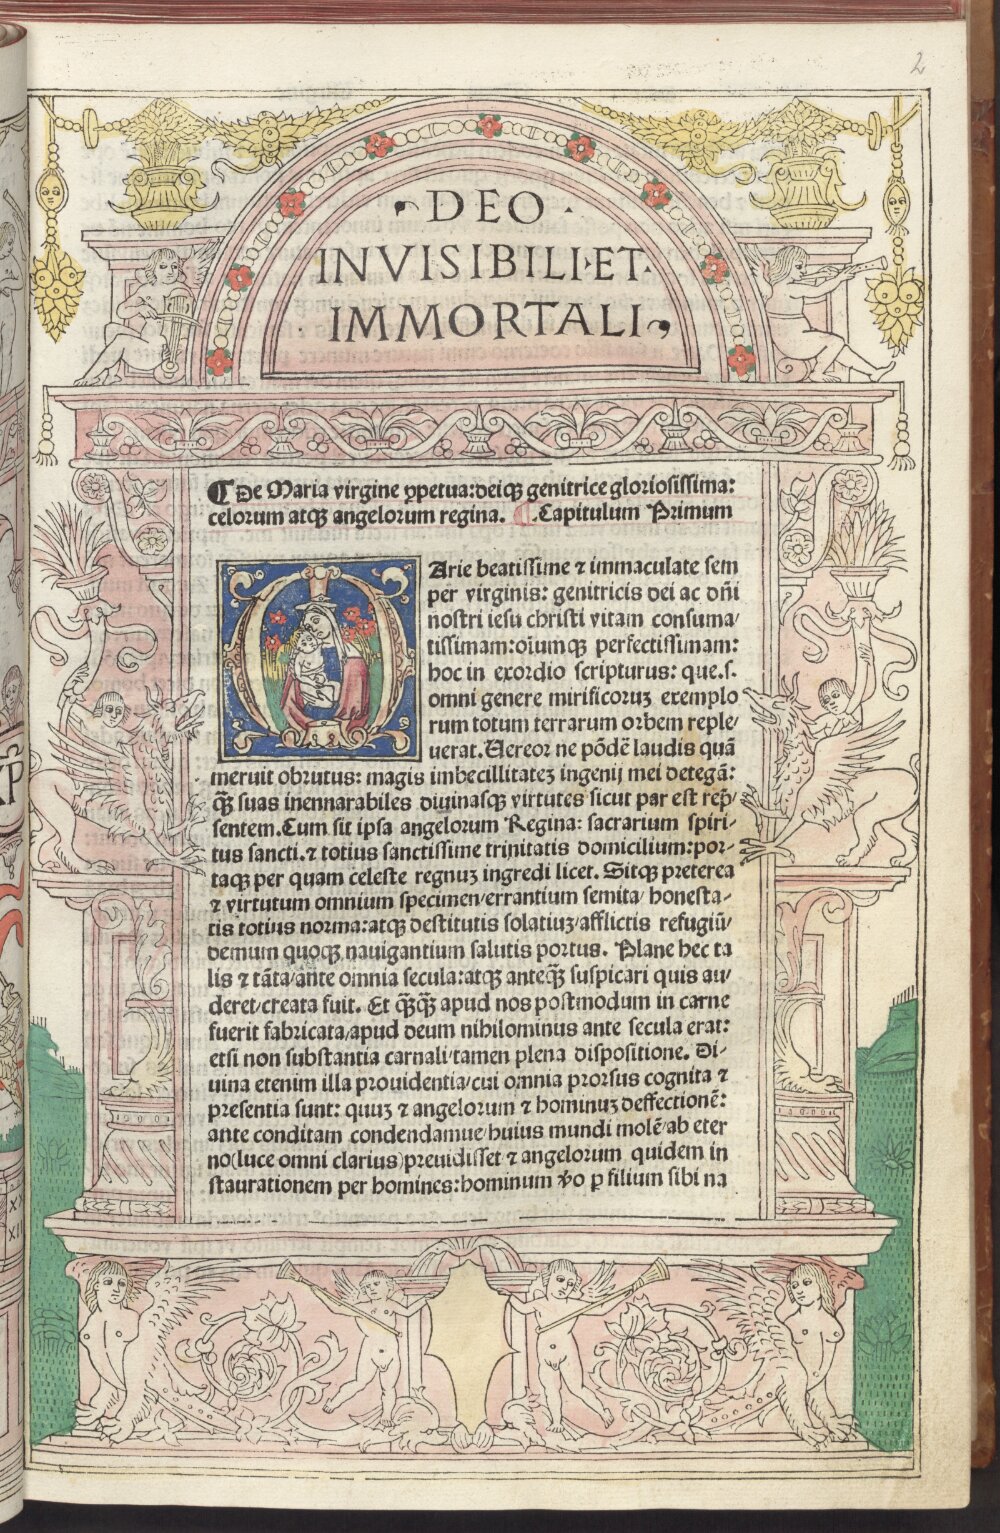 2
DEO
INVISIBILI·ET·
IMMORTALI
¶ De Maria virgine ꝑpetua: deiqꝫ genitrice gloriosissima:
celorum atqꝫ angelorum regina. ¶ .Capitulum Primum
Arie beatissime ⁊ immaculate sem
per virginis: genitricis dei ac dñi
nostri iesu christi vitam consuma/
tissimam: oĩumqꝫ perfectissimam:
hoc in exordio scripturus: que.s.
omni genere mirificoruꝫ exemplo
rum totum terrarum orbem reple/
uerat. Uereor ne põdẽ laudis quã
meruit obrutus: magis imbecillitateꝫ ingenij mei detegã:
q̃ꝫ suas inennarabiles diuinasqꝫ virtutes sicut par est rep̃/
sentem. Cum sit ipsa angelorum Regina: sacrarium spiri-
tus sancti. ⁊ totius sanctissime trinitatis domicilium: por-
taqꝫ per quam celeste regnuꝫ ingredi licet. Sitqꝫ preterea
⁊ virtutum omnium specimen/ errantium semita/ honesta-
tis totius norma: atqꝫ destitutis solatiuꝫ/ afflictis refugiũ/
demum quoqꝫ nauigantium salutis portus. Plane hec ta
lis ⁊ tãta/ ante omnia secula: atqꝫ anteq̃ꝫ suspicari quis au/
deret/ creata fuit. Et q̃ꝫq̃ꝫ apud nos postmodum in carne
fuerit fabricata/ apud deum nihilominus ante secula erat:
etsi non substantia carnali/ tamen plena dispositione. Di/
uina etenim illa prouidentia/ cui omnia prorsus cognita ⁊
presentia sunt: quuꝫ ⁊ angelorum ⁊ hominuꝫ deffectionẽ:
ante conditam condendamue/ huius mundi molẽ/ ab eter
no(luce omni clarius) preuidisset ⁊ angelorum quidem in
staurationem per homines: hominum v̾o p filium sibi na